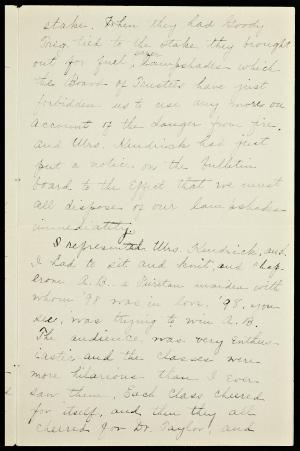 stake. When they had Goody
Prig tied to the stake they brought
out for fuel, our lampshades which
the Board of Trustees have just
forbidden us to use any more on
account of the danger from fire.
and Mrs. Kendrick had just
put a notice on the bulletin
board to the effect that we must
all dispose of our lampshades
immediately.
I represented Mrs. Kendrick, and
I had to sit and knit, and chap-
erone A.B. a Puritan maiden with
whom '98 was in love. '98, you
see, was trying to win A.B.
The audience, was very enthus-
iastic and the classes were
more hilarious than I ever
saw them. Each class cheered
for itself, and then they all
cheered for Dr. Taylor, and